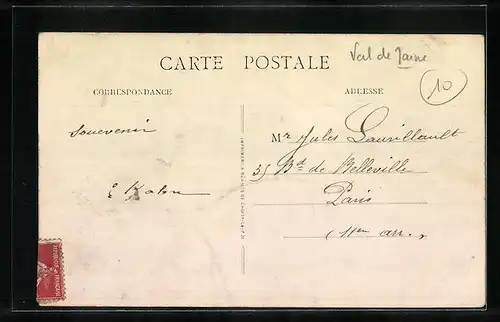 Val de Marne
CARTE POSTALE
10
CORRESPONDANCE
ADRESSE
Souvenir
Mr Jules Laurillault
35 Bd de Belleville
E Kalon
Paris
(11em arr.,